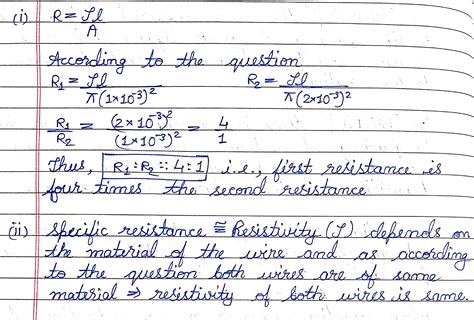 (i) R = ρl/A
According to the question
R₁ = ρl/π(1×10⁻³)² R₂ = ρl/π(2×10⁻³)²
R₁/R₂ = (2×10⁻³)²/(1×10⁻³)² = 4/1
Thus, R₁:R₂ :: 4:1 i.e., first resistance is
four times the second resistance
(ii) Specific resistance ≅ Resistivity (ρ) depends on
the material of the wire and as according
to the question both wires are of same
material ⇒ resistivity of both wires is same.